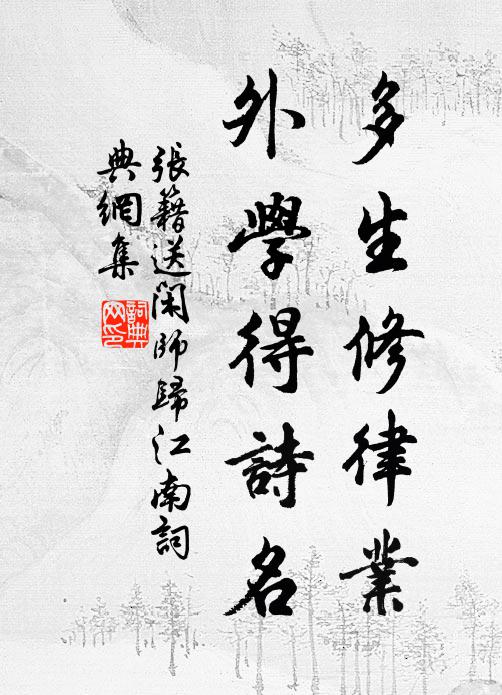 多生修律業
外學得詩名
張籍送閑師歸江南詞
典網集
詞典
网印